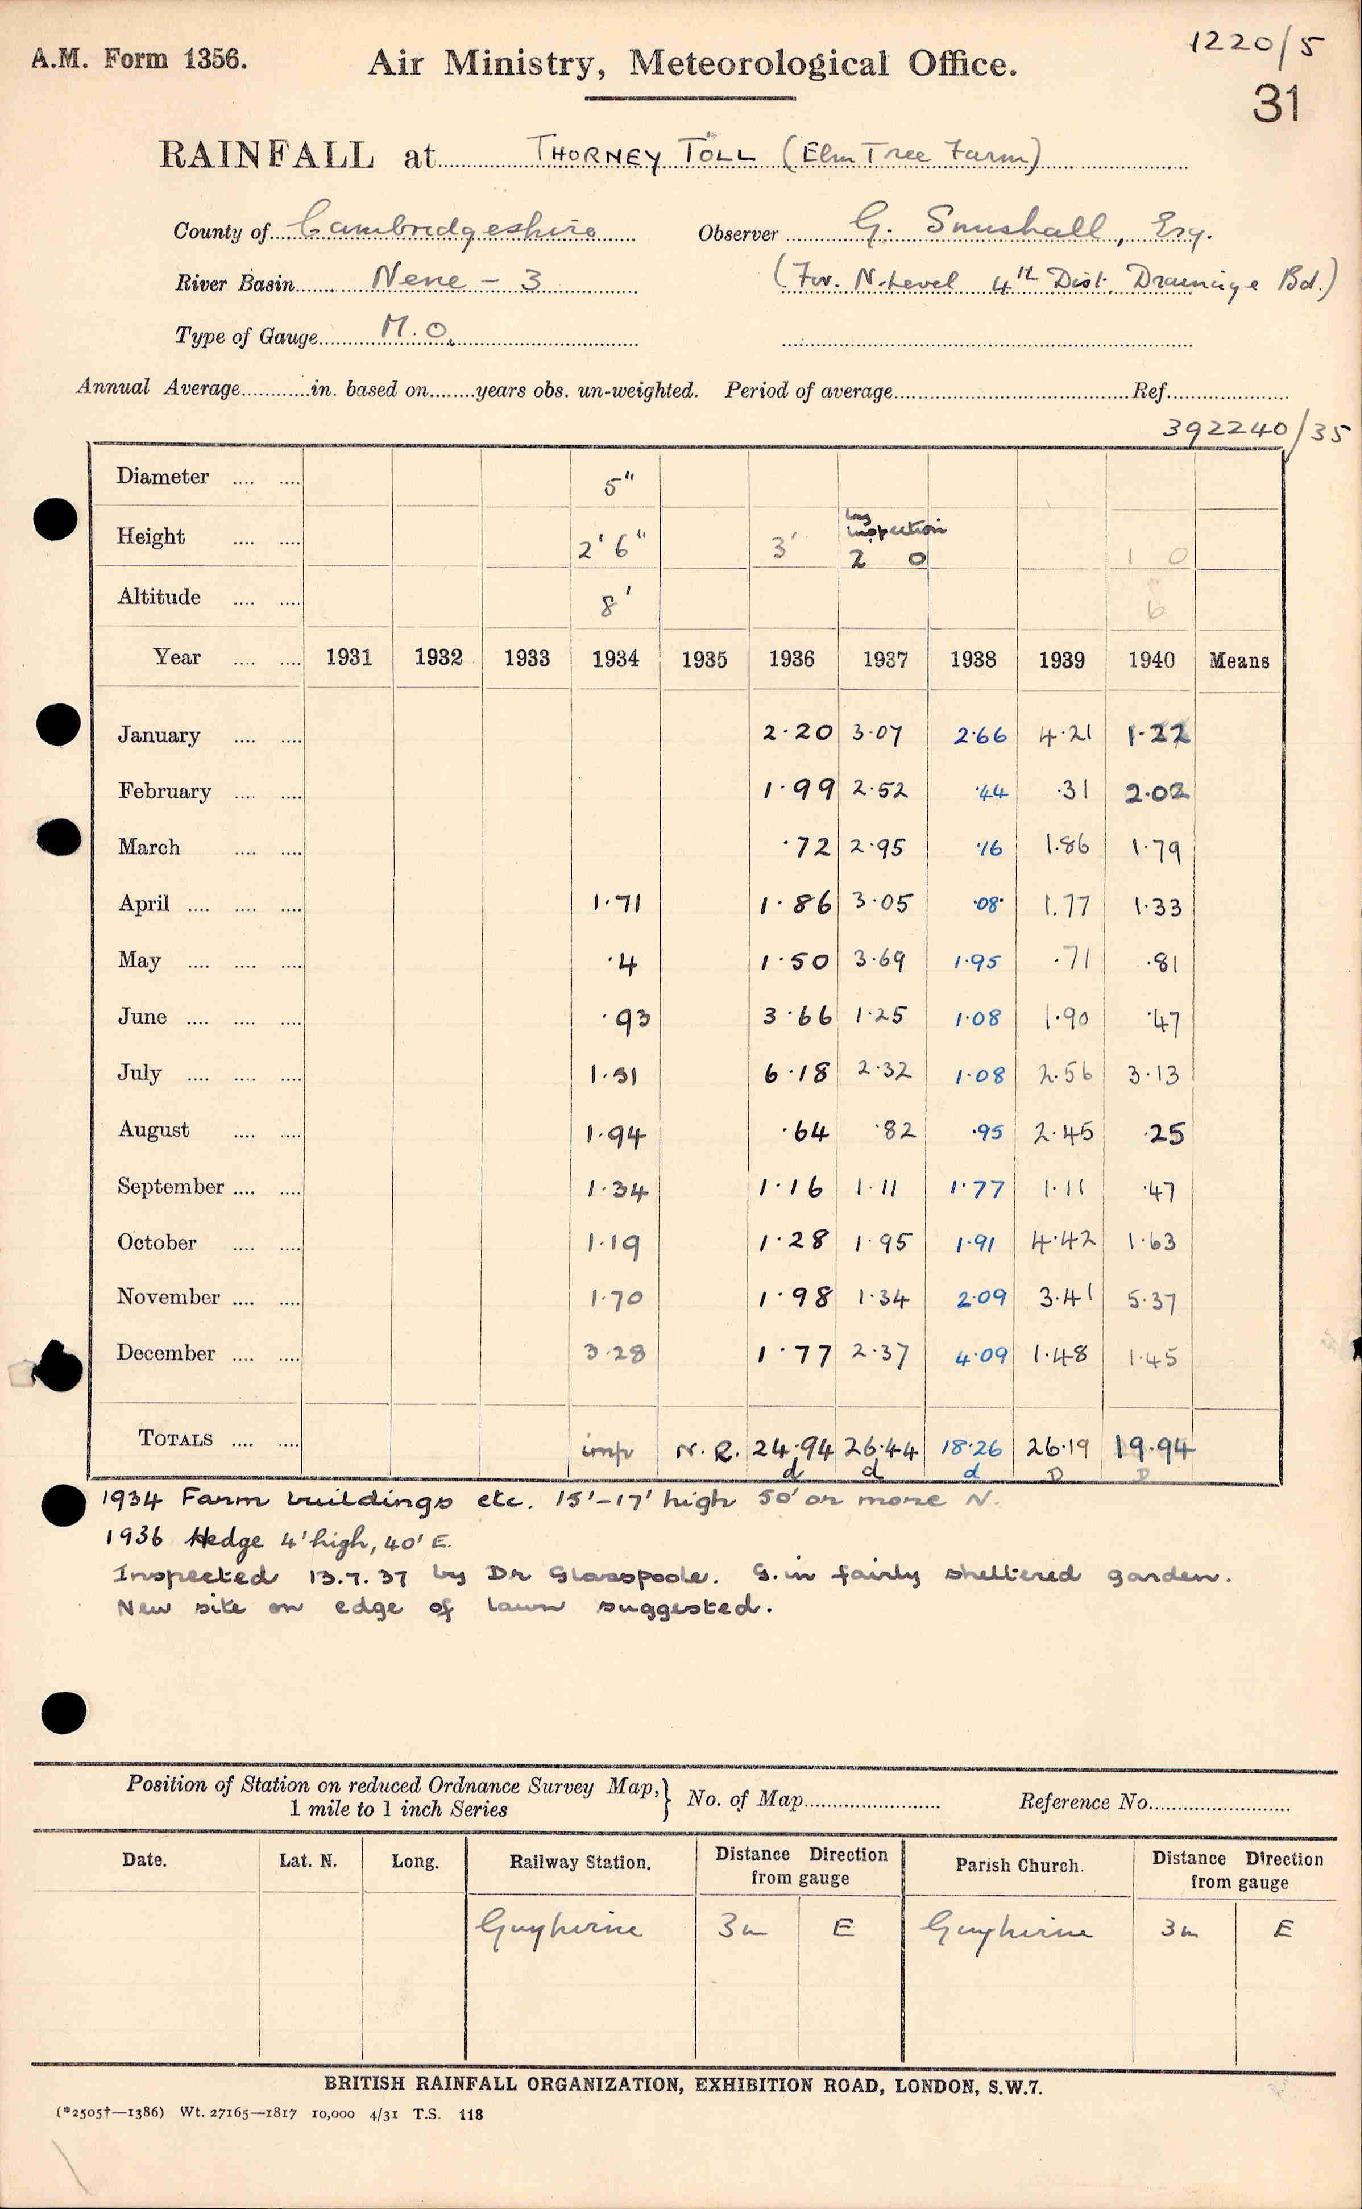 1220/5
A.M. Form 1356. Air Ministry, Meteorological Office.
31
RAINFALL at THORNEY TOLL (Elm Tree Farm)
County of Cambridgeshire Observer G. Smushall, Esq.
River Basin Nene - 3 (For. N. Level 4th Dist. Drainage Bd.)
Type of Gauge M.O.
Annual Average in. based on years obs. un-weighted. Period of average Ref.
392240/35
Diameter 5"
Height 2' 6" 3' by inspection 2 0 1 0
Altitude 8' 6
Year 1931 1932 1933 1934 1935 1936 1937 1938 1939 1940 Means
January 2.20 3.07 2.66 4.21 1.22
February 1.99 2.52 .44 .31 2.02
March .72 2.95 .16 1.86 1.79
April 1.71 1.86 3.05 .08 1.77 1.33
May .4 1.50 3.69 1.95 .71 .81
June .93 3.66 1.25 1.08 1.90 .47
July 1.51 6.18 2.32 1.08 2.56 3.13
August 1.94 .64 .82 .95 2.45 .25
September 1.34 1.16 1.11 1.77 1.11 .47
October 1.19 1.28 1.95 1.91 4.42 1.63
November 1.70 1.98 1.34 2.09 3.41 5.37
December 3.28 1.77 2.37 4.09 1.48 1.45
TOTALS imp N.R. 24.94 26.44 18.26 26.19 19.94
d d d D D
1934 Farm buildings etc. 15'-17' high 50' or more N.
1936 Hedge 4' high, 40' E.
Inspected 13.7.37 by Dr Glasspoole. G. in fairly sheltered garden.
New site on edge of lawn suggested.
Position of Station on reduced Ordnance Survey Map, 1 mile to 1 inch Series } No. of Map Reference No.
Date. Lat. N. Long. Railway Station. Distance Direction from gauge Parish Church. Distance Direction from gauge
Guyhirne 3m E Guyhirne 3m E
BRITISH RAINFALL ORGANIZATION, EXHIBITION ROAD, LONDON, S.W.7.
(*2505†—1386) Wt. 27165—1817 10,000 4/31 T.S. 118